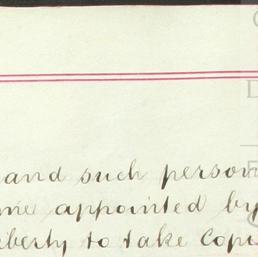 and such person
me appointed by
iberty to take copi